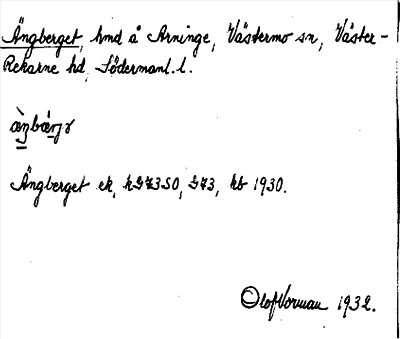 Ängberget, hmd å Arninge, Västermo sn, Väster-
Rekarne hd, Södermanl. l.
Ängberget ek, kb 1930.
Olof Vorman 1932.